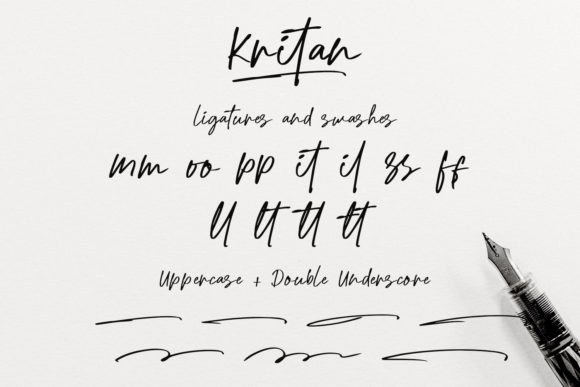 Kritan
ligatures and swashes
mm oo pp it il ss ff
ll lt tl tt
Uppercase + Double Underscore